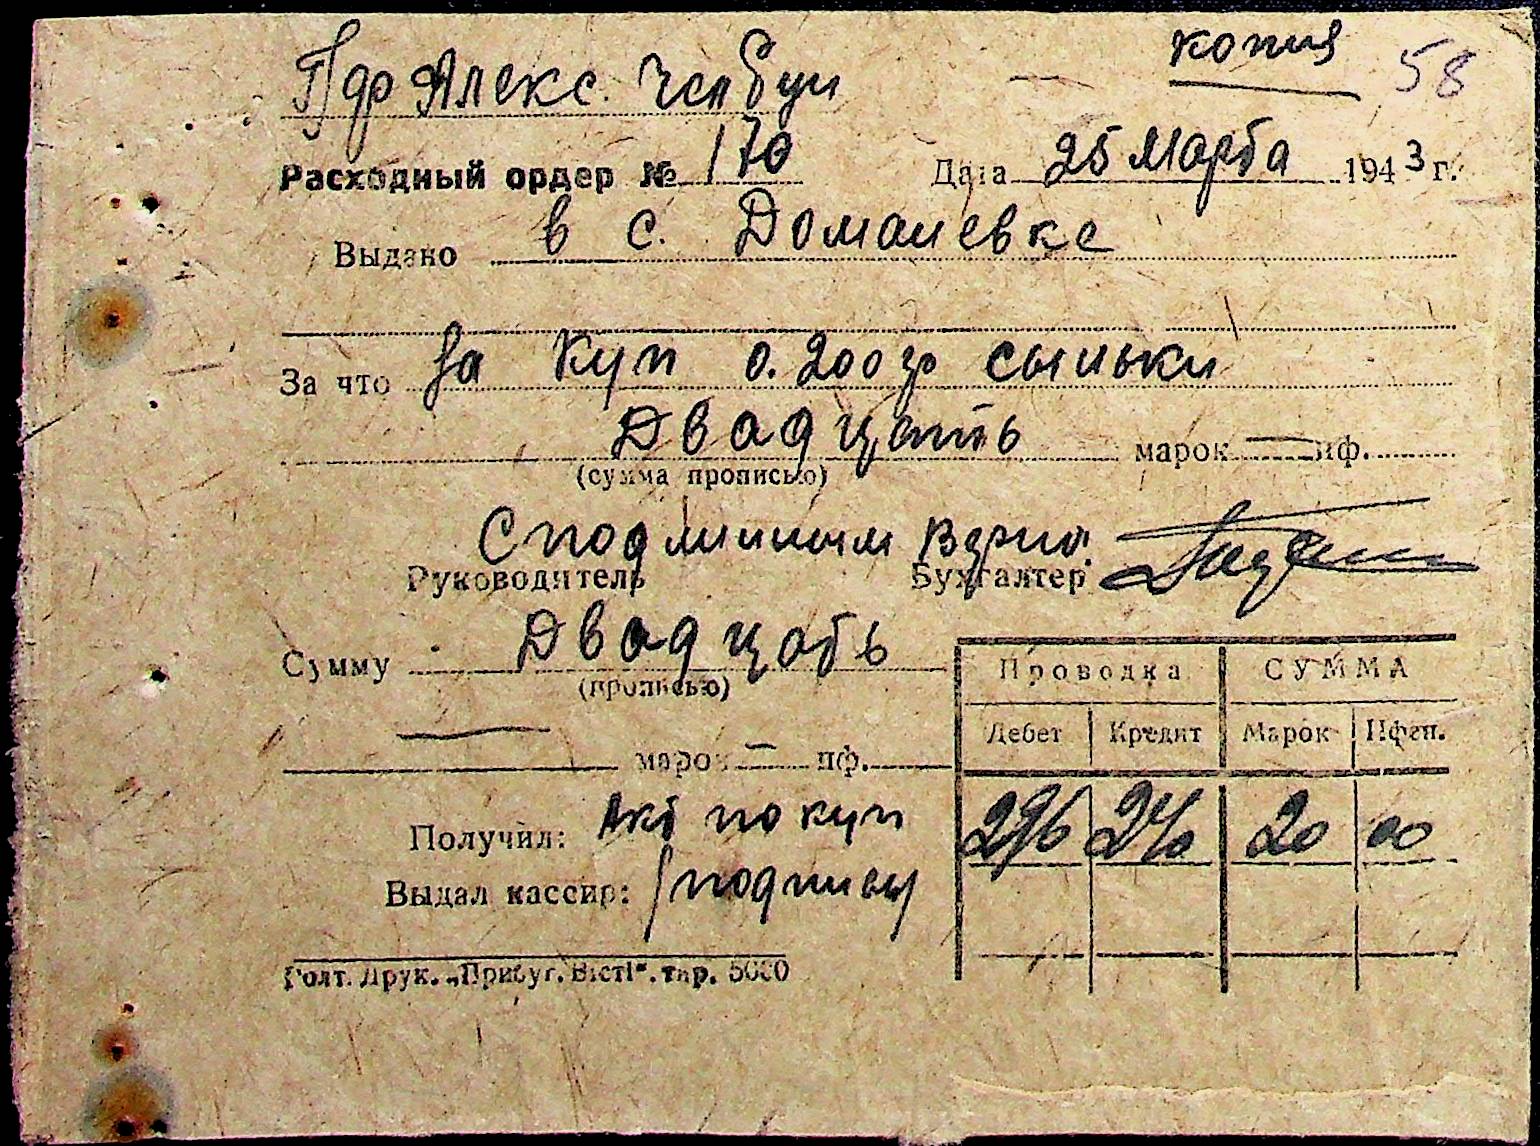 копия 58
Пдф Алекс.
Расходный ордер № 170 Дата 25 Марта 1943 г.
Выдано в с. Доманевке
За что за куп 0.200 гр сыньки
Двадцать марок — пф.
(сумма прописью)
С подлинным верно:
Руководитель Бухгалтер
Сумму Двадцать
(прописью)
— марок — пф.
Проводка СУММА
Дебет Кредит Марок Пфен.
20 00
Получил: Акт покуп
Выдал кассир: подписи
Голт. Друк. „Прибуг. Вісті“. тир. 5000